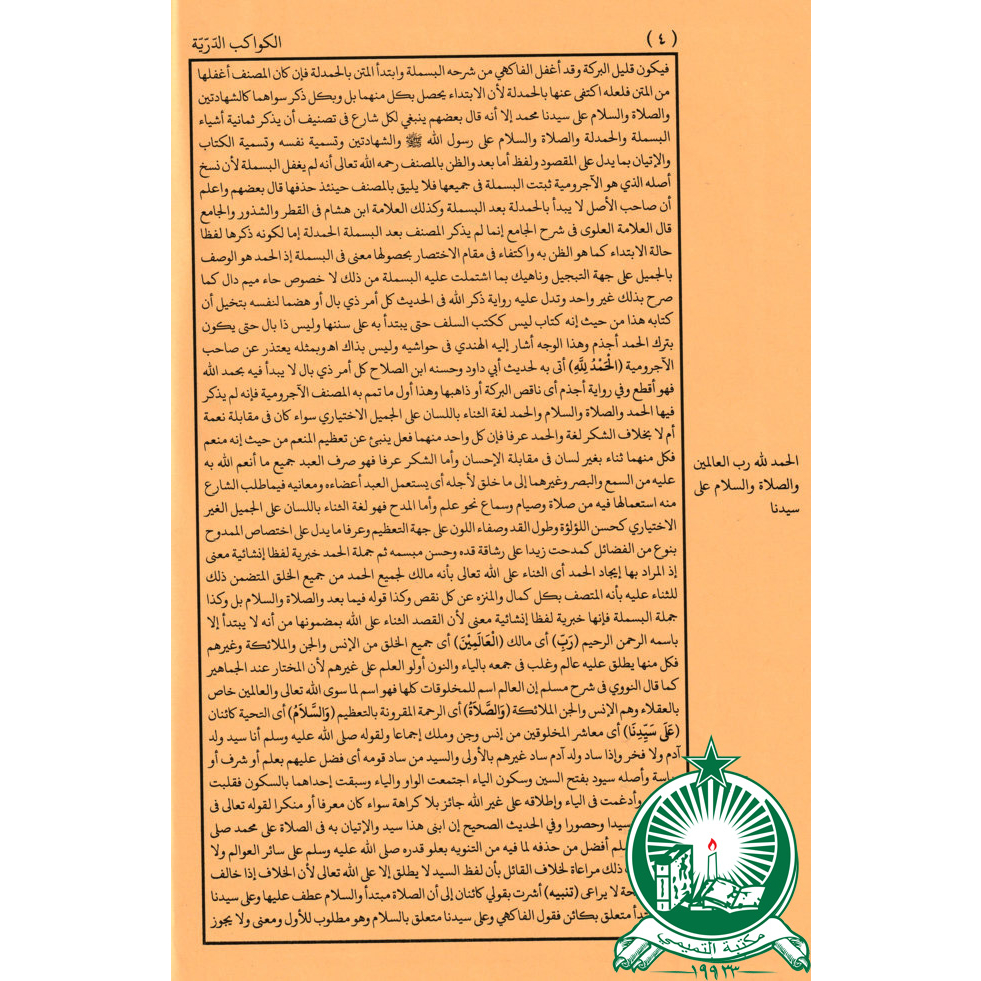 (٤)
الكواكب الدّرّيّة
فيكون قليل البركة وقد أغفل الفاكهي من شرحه البسملة وابتدأ المتن بالحمدلة فإن كان المصنف أغفلها
من المتن فلعله اكتفى عنها بالحمدلة لأن الابتداء يحصل بكل منهما بل وبكل ذكر سواهما كالشهادتين
والصلاة والسلام على سيدنا محمد إلا أنه قال بعضهم ينبغي لكل شارع فى تصنيف أن يذكر ثمانية أشياء
البسملة والحمدلة والصلاة والسلام على رسول الله ﷺ والشهادتين وتسمية نفسه وتسمية الكتاب
والإتيان بما يدل على المقصود ولفظ أما بعد والظن بالمصنف رحمه الله تعالى أنه لم يغفل البسملة لأن نسخ
أصله الذي هو الآجرومية ثبتت البسملة فى جميعها فلا يليق بالمصنف حينئذ حذفها قال بعضهم واعلم
أن صاحب الأصل لا يبدأ بالحمدلة بعد البسملة وكذلك العلامة ابن هشام فى القطر والشذور والجامع
قال العلامة العلوى فى شرح الجامع إنما لم يذكر المصنف بعد البسملة الحمدلة إما لكونه ذكرها لفظا
حالة الابتداء كما هو الظن به واكتفاء فى مقام الاختصار بحصولها معنى فى البسملة إذ الحمد هو الوصف
بالجميل على جهة التبجيل وناهيك بما اشتملت عليه البسملة من ذلك لا خصوص حاء ميم دال كما
صرح بذلك غير واحد وتدل عليه رواية ذكر الله فى الحديث كل أمر ذي بال أو هضما لنفسه بتخيل أن
كتابه هذا من حيث إنه كتاب ليس ككتب السلف حتى يبتدأ به على سننها وليس ذا بال حتى يكون
بترك الحمد أجذم وهذا الوجه أشار إليه الهندي فى حواشيه وليس بذاك اه وبمثله يعتذر عن صاحب
الآجرومية (الْحَمْدُ لِلّٰهِ) أتى به لحديث أبي داود وحسنه ابن الصلاح كل أمر ذي بال لا يبدأ فيه بحمد الله
فهو أقطع وفي رواية أجذم أى ناقص البركة أو ذاهبها وهذا أول ما تمم به المصنف الآجرومية فإنه لم يذكر
فيها الحمد والصلاة والسلام والحمد لغة الثناء باللسان على الجميل الاختياري سواء كان فى مقابلة نعمة
أم لا بخلاف الشكر لغة والحمد عرفا فإن كل واحد منهما فعل ينبئ عن تعظيم المنعم من حيث إنه منعم
فكل منهما ثناء بغير لسان فى مقابلة الإحسان وأما الشكر عرفا فهو صرف العبد جميع ما أنعم الله به
عليه من السمع والبصر وغيرهما إلى ما خلق لأجله أى يستعمل العبد أعضاءه ومعانيه فيما طلب الشارع
منه استعمالها فيه من صلاة وصيام وسماع نحو علم وأما المدح فهو لغة الثناء باللسان على الجميل الغير
الاختياري كحسن اللؤلؤة وطول القد وصفاء اللون على جهة التعظيم وعرفا ما يدل على اختصاص الممدوح
بنوع من الفضائل كمدحت زيدا على رشاقة قده وحسن مبسمه ثم جملة الحمد خبرية لفظا إنشائية معنى
إذ المراد بها إيجاد الحمد أى الثناء على الله تعالى بأنه مالك لجميع الحمد من جميع الخلق المتضمن ذلك
للثناء عليه بأنه المتصف بكل كمال والمنزه عن كل نقص وكذا قوله فيما بعد والصلاة والسلام بل وكذا
جملة البسملة فإنها خبرية لفظا إنشائية معنى لأن القصد الثناء على الله بمضمونها من أنه لا يبتدأ إلا
باسمه الرحمن الرحيم (رَبِّ) أى مالك (الْعَالَمِيْنَ) أى جميع الخلق من الإنس والجن والملائكة وغيرهم
فكل منها يطلق عليه عالم وغلب فى جمعه بالياء والنون أولو العلم على غيرهم لأن المختار عند الجماهير
كما قال النووي فى شرح مسلم إن العالم اسم للمخلوقات كلها فهو اسم لما سوى الله تعالى والعالمين خاص
بالعقلاء وهم الإنس والجن الملائكة (وَالصَّلَاةُ) أى الرحمة المقرونة بالتعظيم (وَالسَّلَامُ) أى التحية كائنان
(عَلَى سَيِّدِنَا) أى معاشر المخلوقين من إنس وجن وملك إجماعا ولقوله صلى الله عليه وسلم أنا سيد ولد
آدم ولا فخر وإذا ساد ولد آدم ساد غيرهم بالأولى والسيد من ساد قومه أى فضل عليهم بعلم أو شرف أو
وأصله سيود بفتح السين وسكون الياء اجتمعت الواو والياء وسبقت إحداهما بالسكون فقلبت
وأدغمت فى الياء وإطلاقه على غير الله جائز بلا كراهة سواء كان معرفا أو منكرا لقوله تعالى فى
سيدا وحصورا وفي الحديث الصحيح إن ابنى هذا سيد والإتيان به فى الصلاة على محمد صلى
أفضل من حذفه لما فيه من التنويه بعلو قدره صلى الله عليه وسلم على سائر العوالم ولا
ذلك مراعاة لخلاف القائل بأن لفظ السيد لا يطلق إلا على الله تعالى لأن الخلاف إذا خالف
لا يراعى (تنبيه) أشرت بقولي كائنان إلى أن الصلاة مبتدأ والسلام عطف عليها وعلى سيدنا
متعلق بكائن فقول الفاكهي وعلى سيدنا متعلق بالسلام وهو مطلوب للأول ومعنى ولا يجوز
الحمد لله رب العالمين
والصلاة والسلام على
سيدنا
مكتبة التميمي
١٩٩٣٣